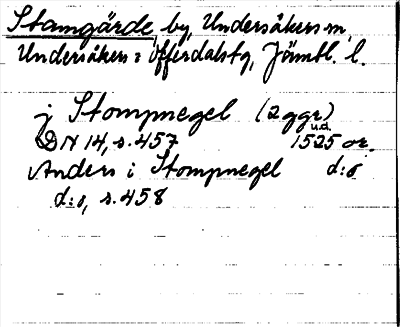 Stamgärde by, Undersåkers sn,
Undersåkers o Offerdals tg, Jämtl. l.
j Stompnegel (2 ggr)
u.d.
DN 14, s. 457 1525 or.
Anders i Stompnegel d:o
d:o, s. 458